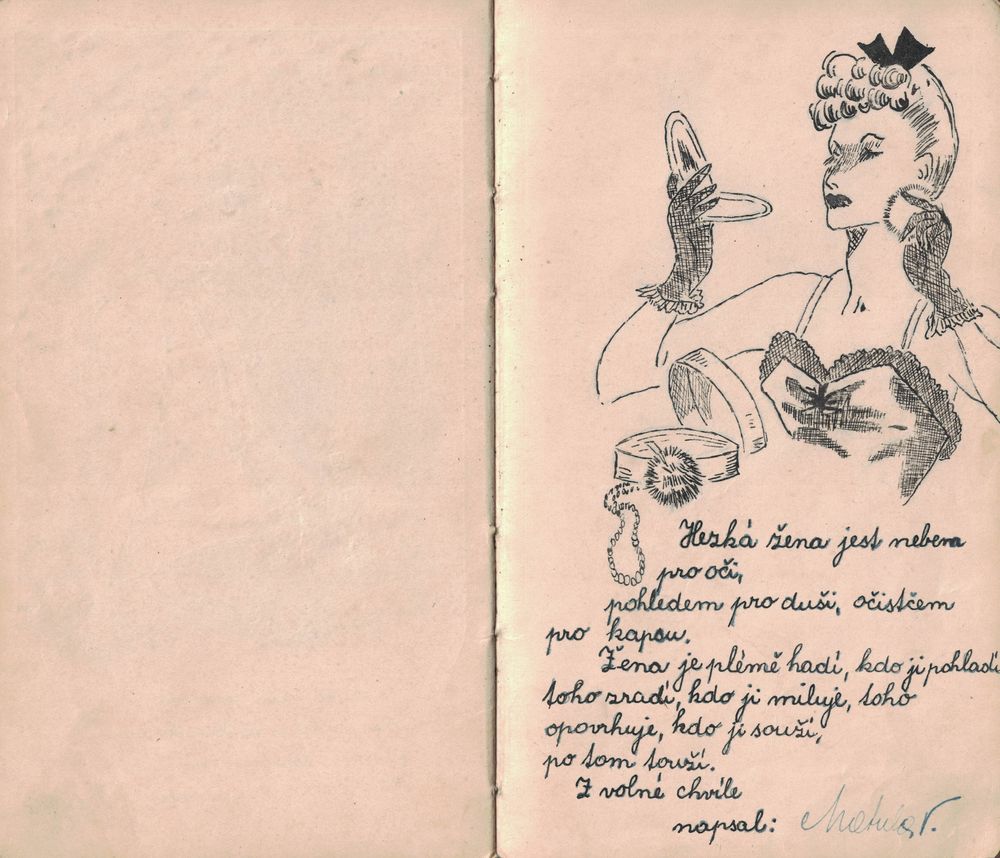 Hezká žena jest nebem
pro oči,
pohledem pro duši, očistčem
pro kapsu.
Žena je plémě hadí, kdo ji pohladí
toho zradí, kdo ji miluje, toho
opovrhuje, kdo ji souží,
po tom touží.
Z volné chvíle
napsal: Matula V.